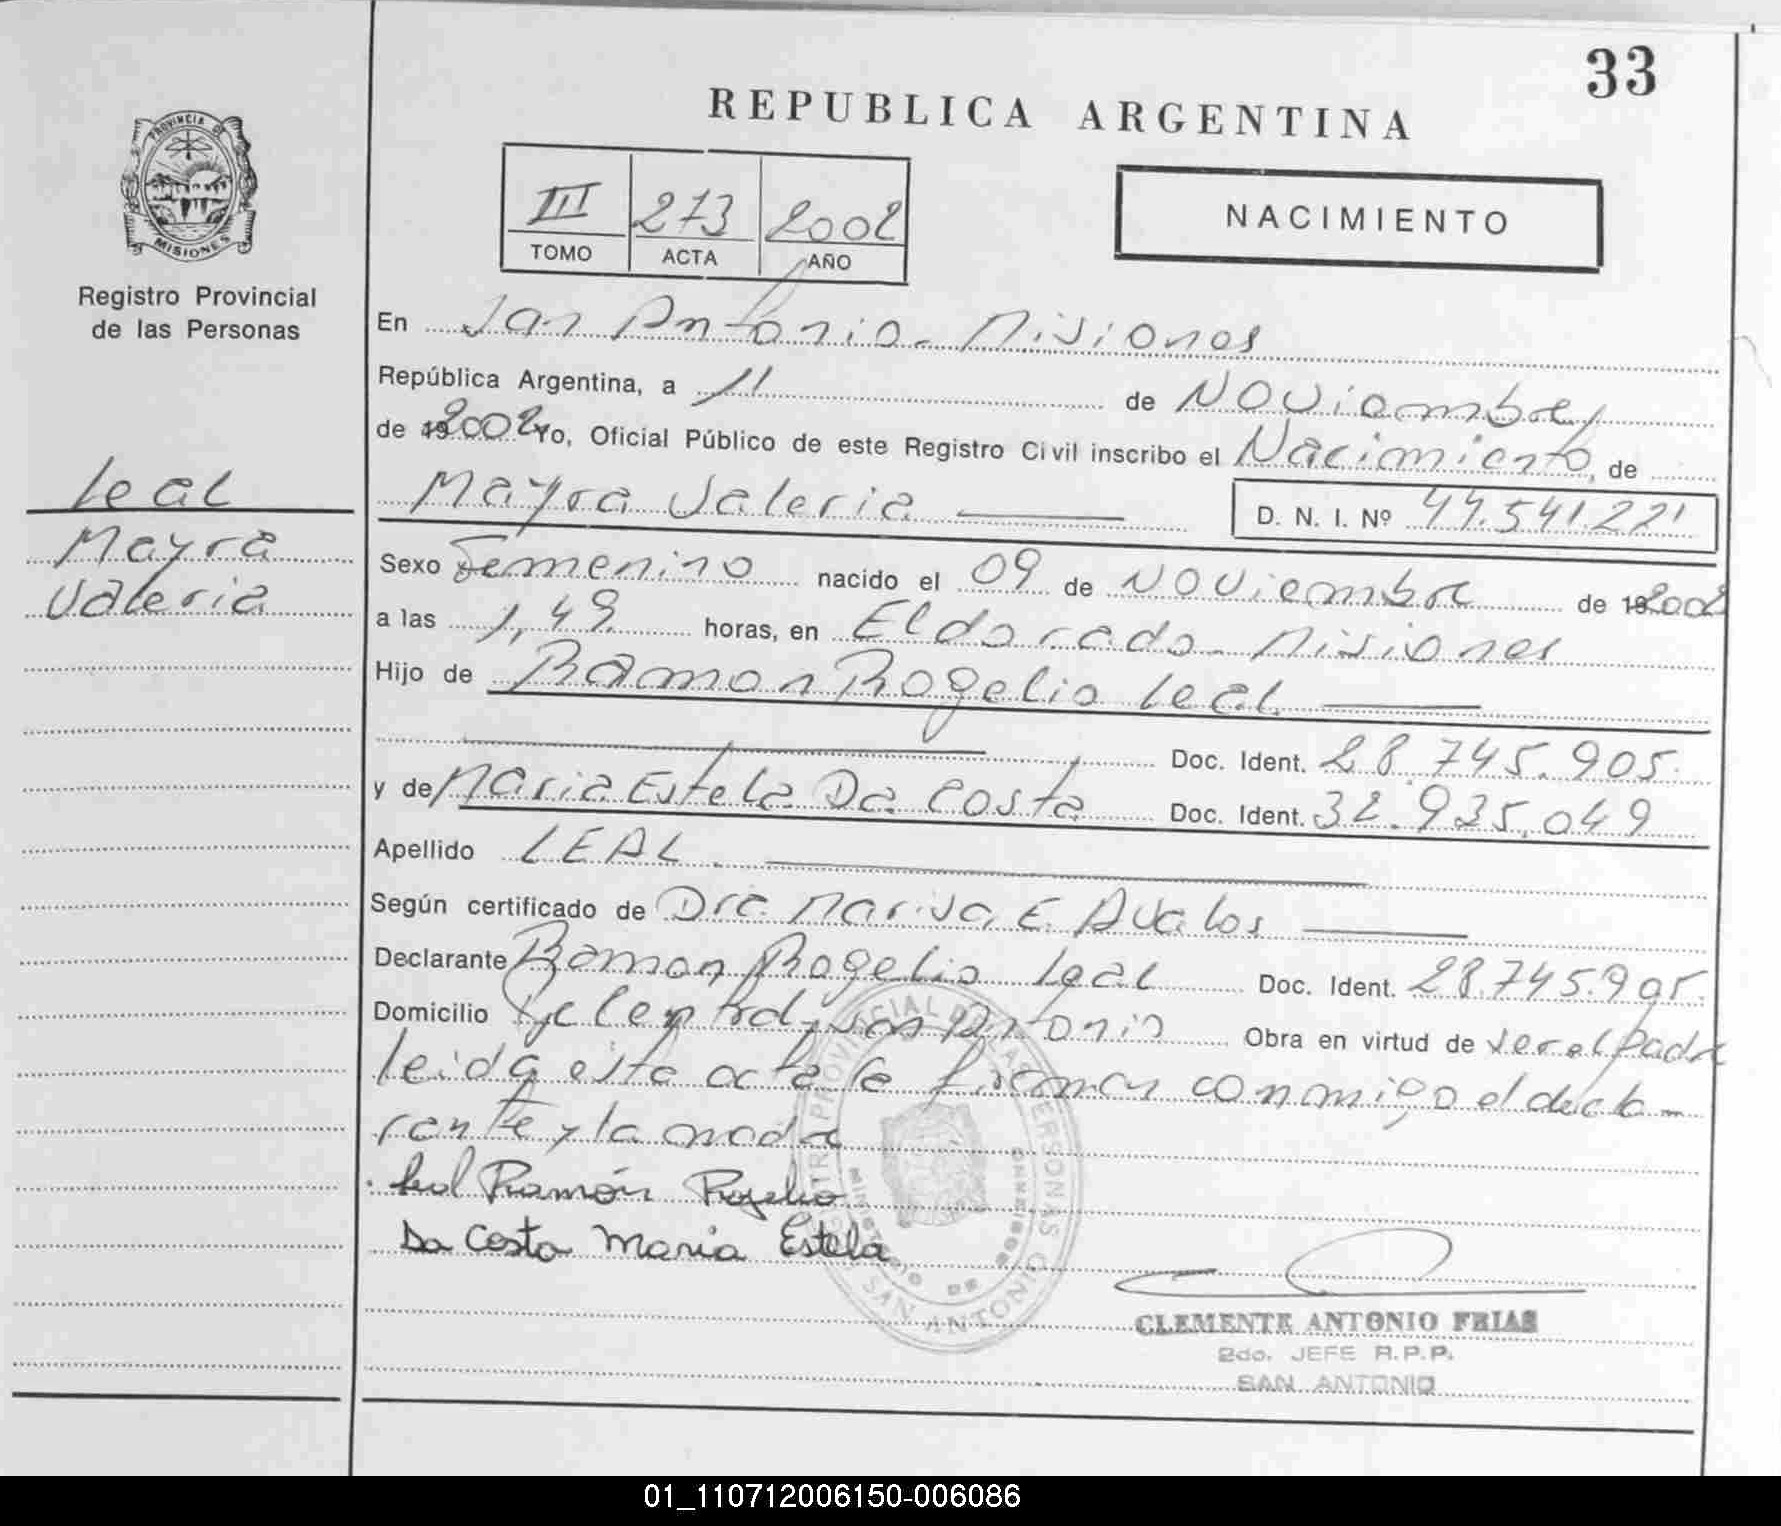 33
REPUBLICA ARGENTINA
PROVINCIA DE
MISIONES
Registro Provincial
de las Personas
III 273 2002
TOMO ACTA AÑO
NACIMIENTO
En San Antonio - Misiones
República Argentina, a 11 de Noviembre
de 192002 Yo, Oficial Público de este Registro Civil inscribo el Nacimiento, de
Leal
Mayra Valeria D. N. I. Nº 44.541221
Mayra
Valeria
Sexo Femenino nacido el 09 de Noviembre de 192002
a las 1,49 horas, en Eldorado - Misiones
Hijo de Ramon Rogelio Leal
Doc. Ident. 28.745.905.
y de Maria Estela Da Costa Doc. Ident. 32.935.049
Apellido LEAL.
Según certificado de Dra. Marisa E. Avalos
Declarante Ramon Rogelio Leal Doc. Ident. 28.745.905.
Domicilio San Antonio Obra en virtud de ser el Padre
leida esta acta la firman conmigo el decla-
rante y la madre
Leal Ramón Rogelio
Da Costa Maria Estela
REGISTRO PROVINCIAL DE LAS PERSONAS
MINISTERIO DE GOBIERNO
SAN ANTONIO
CLEMENTE ANTONIO FRIAS
2do. JEFE R.P.P.
SAN ANTONIO
01_110712006150-006086